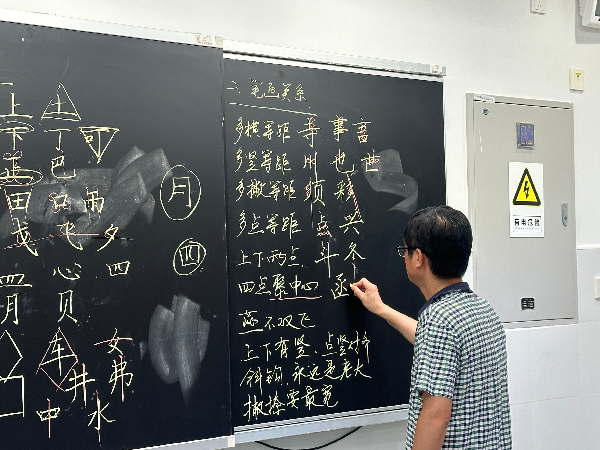 上 土
下 丁 可
正 巴
田 只 雨
成 飞 夕
四 心 四
月 贝
月
四
车 女
井 弗
中 水
二、笔画关系
多横等距 等 事 富
多竖等距 川 也 世
多撇等距 须 彩
多点等距 点 兴
上下两点 斗 冬
四点聚中心 函
燕不双飞
上下有竖、点竖对齐
斜钩永远是老大
撇捺要最宽
有电危险